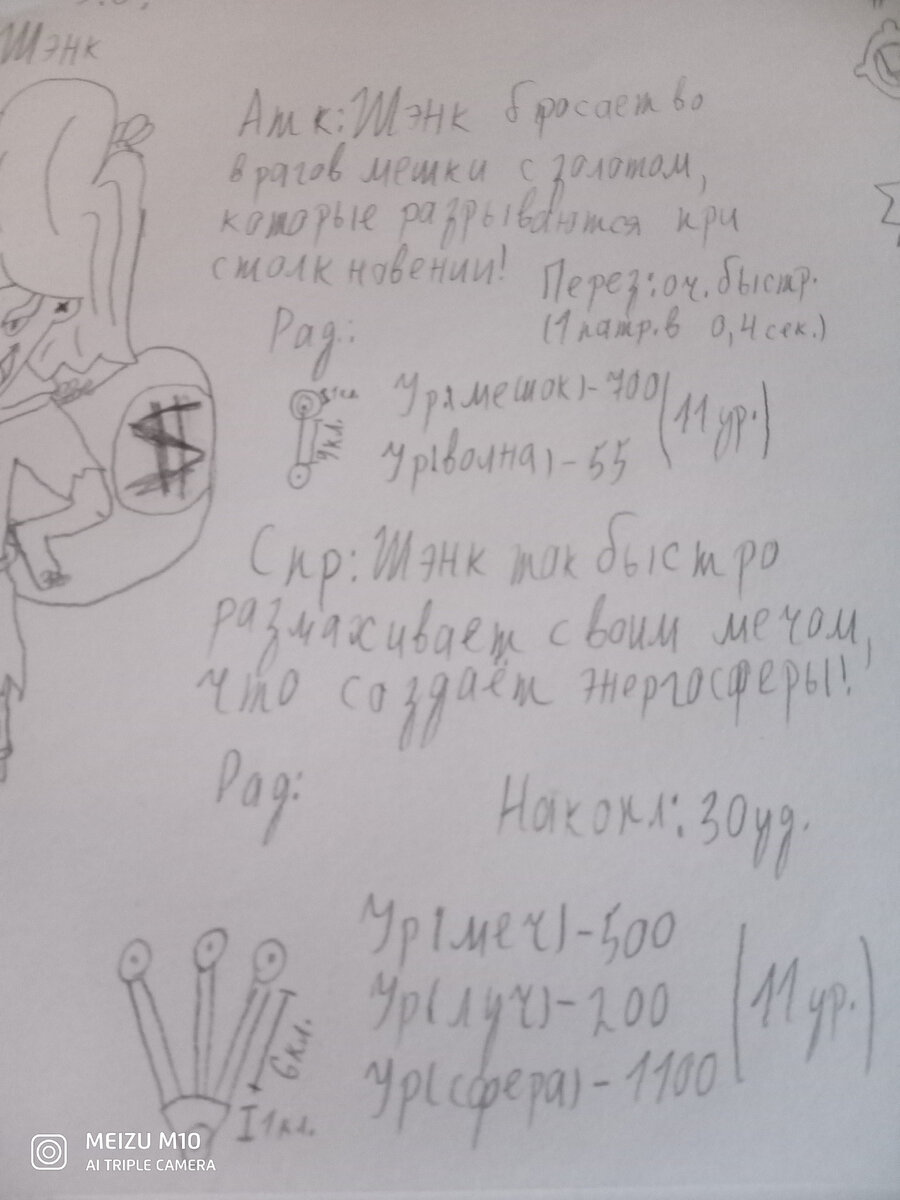 Шэнк
Атк: Шэнк бросает во
врагов мешки с золотом,
которые разрываются при
столкновении!
Перез: оч. быстр.
(1 патр. в 0,4 сек.)
Рад:
Ур(мешок)-700
Ур(волна)-55
(11 ур.)
Спр: Шэнк так быстро
размахивает своим мечом,
что создаёт энергосферы!
Рад:
Накопл: 30уд.
Ур(меч)-500
Ур(луч)-200
Ур(сфера)-1100
(11 ур.)
6кл.
1кл.
MEIZU M10
AI TRIPLE CAMERA